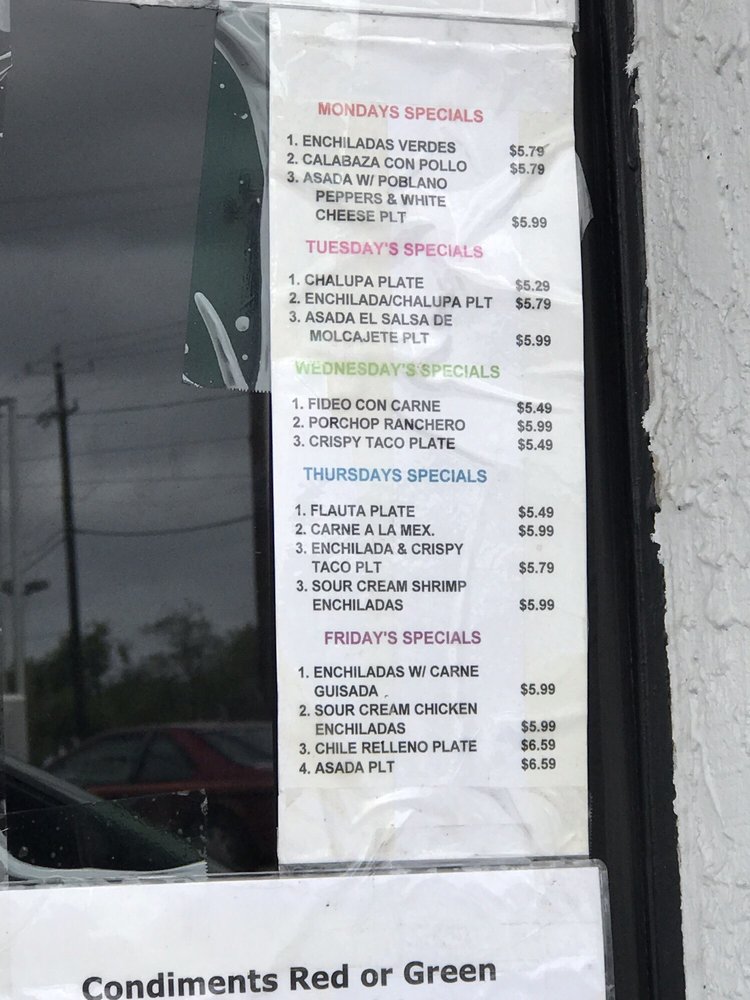 MONDAYS SPECIALS
1. ENCHILADAS VERDES $5.79
2. CALABAZA CON POLLO $5.79
3. ASADA W/ POBLANO
PEPPERS & WHITE
CHEESE PLT $5.99
TUESDAY'S SPECIALS
1. CHALUPA PLATE $5.29
2. ENCHILADA/CHALUPA PLT $5.79
3. ASADA EL SALSA DE
MOLCAJETE PLT $5.99
WEDNESDAY'S SPECIALS
1. FIDEO CON CARNE $5.49
2. PORCHOP RANCHERO $5.99
3. CRISPY TACO PLATE $5.49
THURSDAYS SPECIALS
1. FLAUTA PLATE $5.49
2. CARNE A LA MEX. $5.99
3. ENCHILADA & CRISPY
TACO PLT $5.79
3. SOUR CREAM SHRIMP
ENCHILADAS $5.99
FRIDAY'S SPECIALS
1. ENCHILADAS W/ CARNE
GUISADA $5.99
2. SOUR CREAM CHICKEN
ENCHILADAS $5.99
3. CHILE RELLENO PLATE $6.59
4. ASADA PLT $6.59
Condiments Red or Green